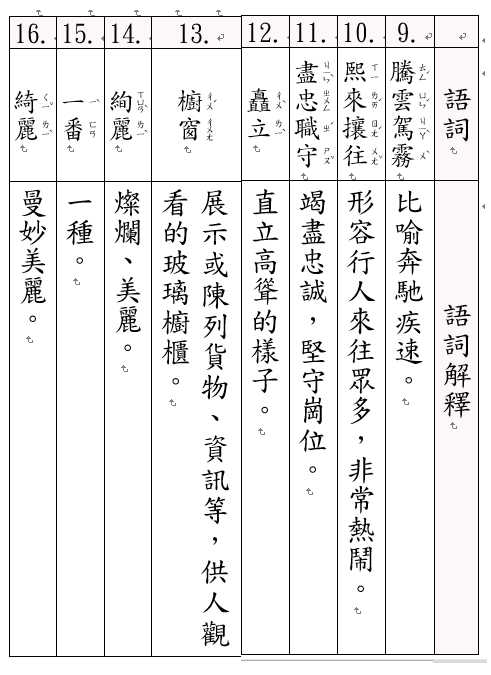 語詞
語詞解釋
9.
騰雲駕霧
比喻奔馳疾速。
10.
熙來攘往
形容行人來往眾多，非常熱鬧。
11.
盡忠職守
竭盡忠誠，堅守崗位。
12.
矗立
直立高聳的樣子。
13.
櫥窗
展示或陳列貨物、資訊等，供人觀
看的玻璃櫥櫃。
14.
絢麗
燦爛、美麗。
15.
一番
一種。
16.
綺麗
曼妙美麗。